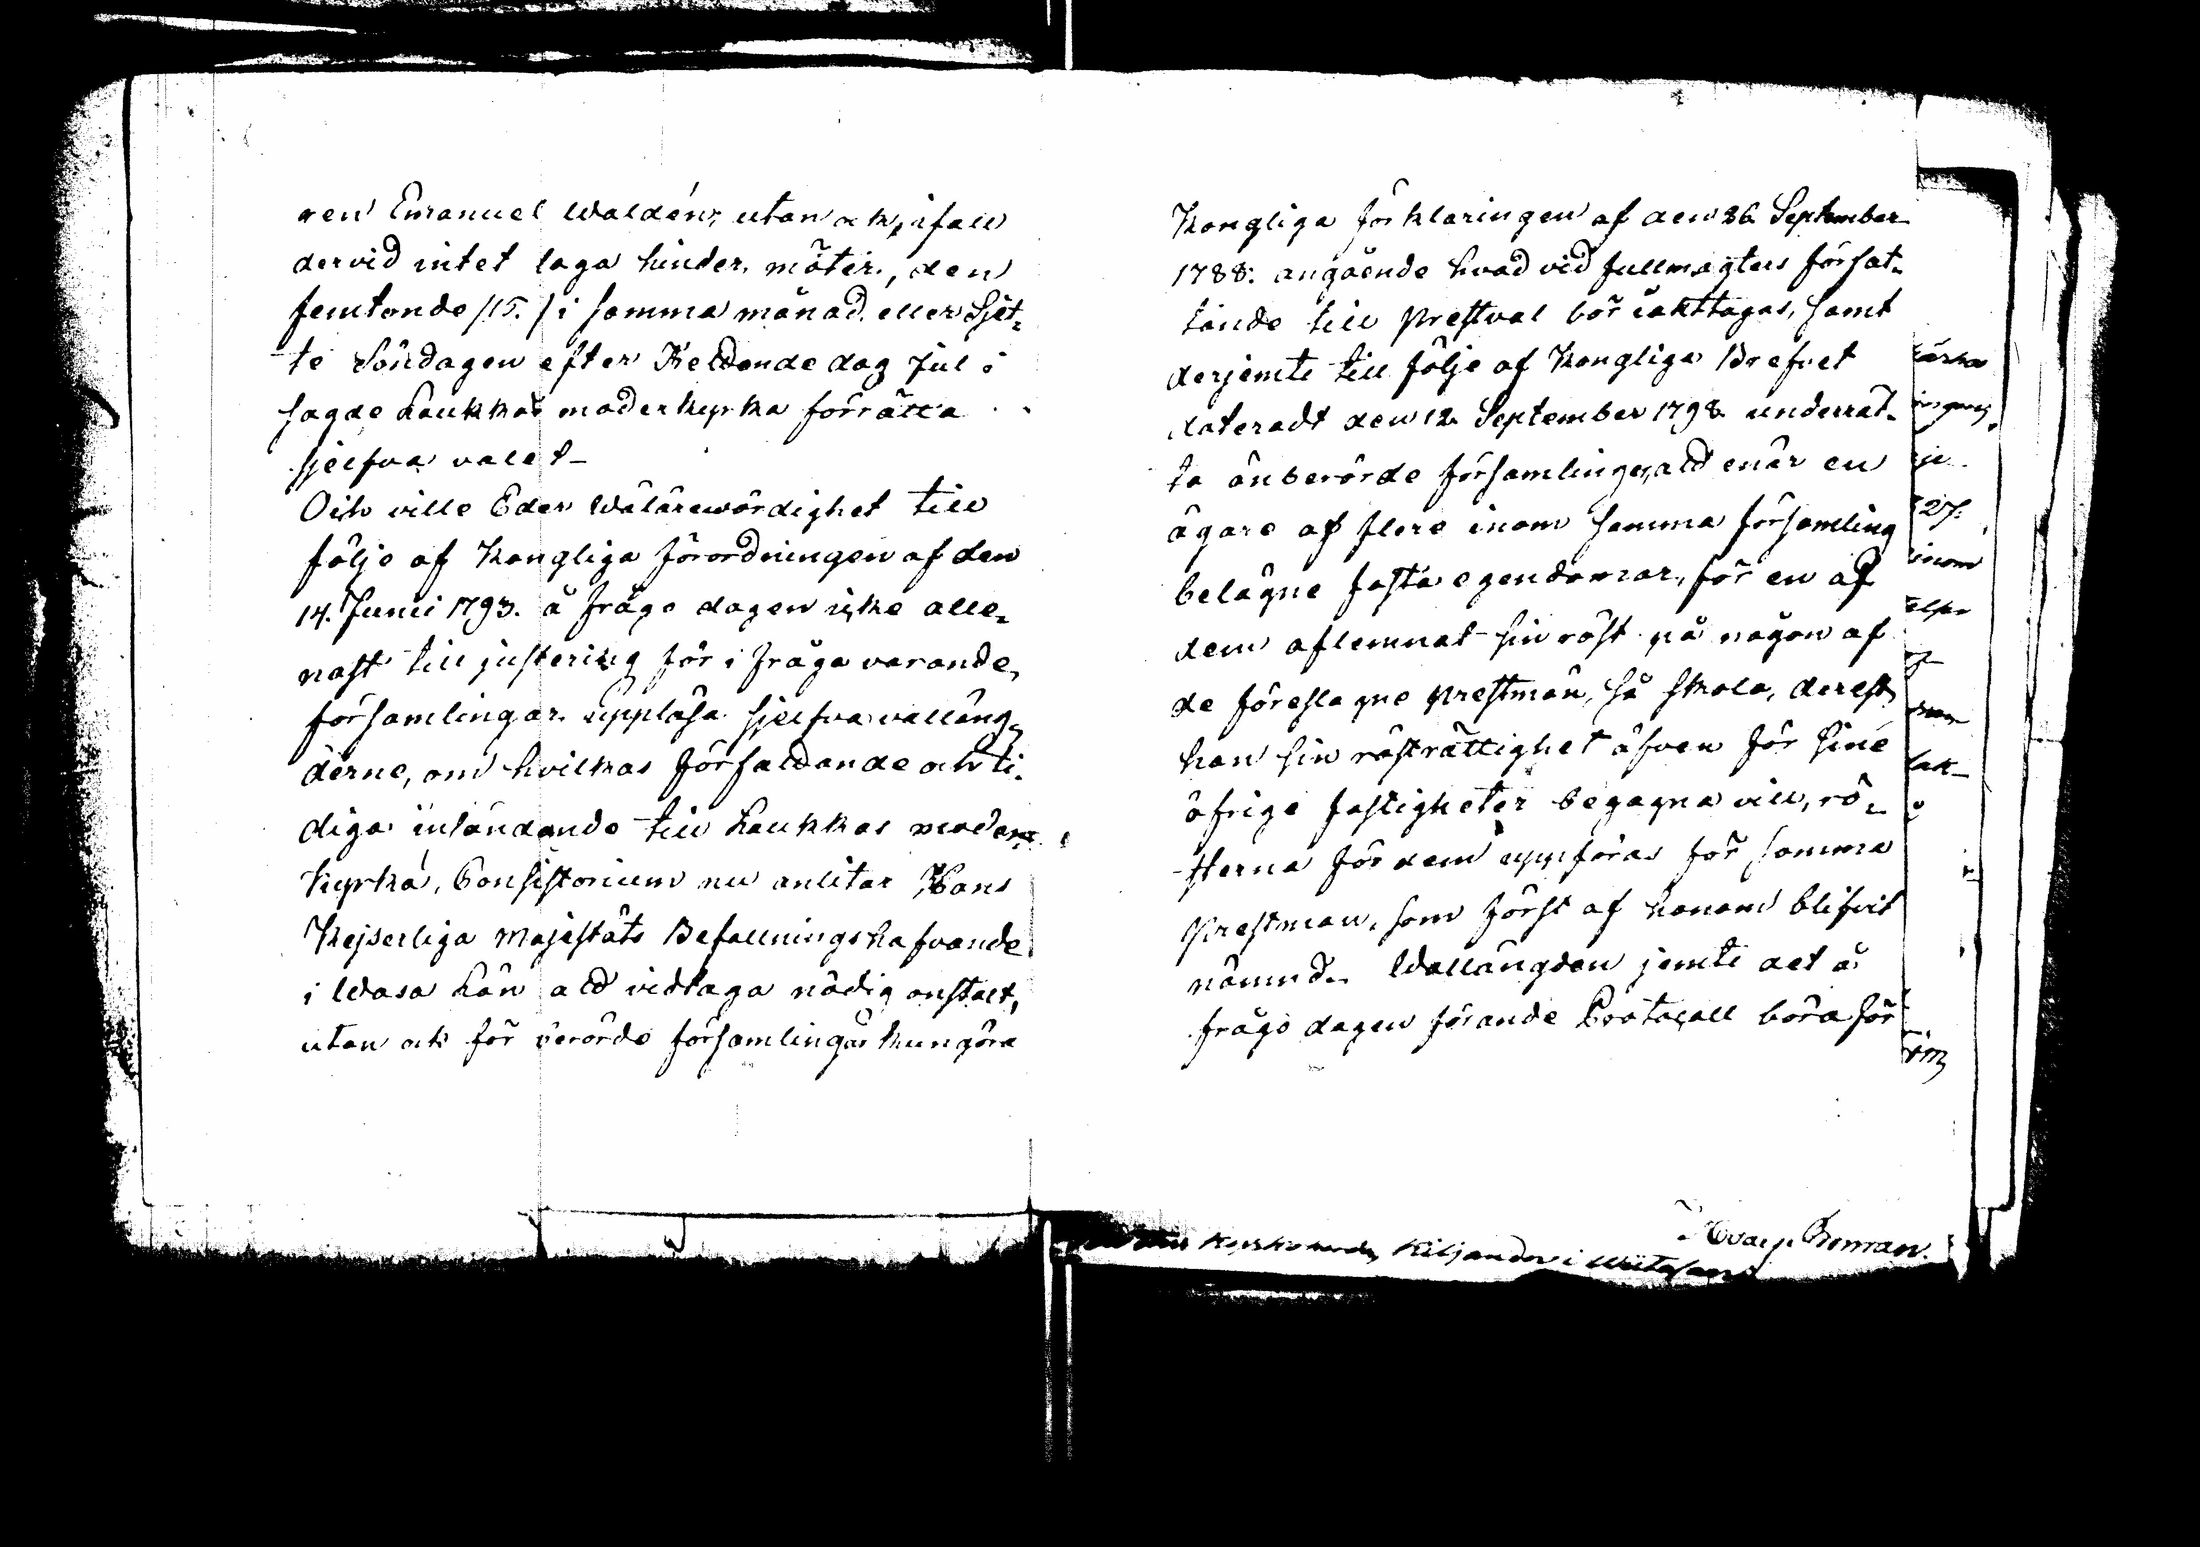 ren Emanuel Waldén, utan ock, ifall
dervid intet laga hinder möter, den
femtonde /15./ i samma månad eller Sjet-
te Söndagen efter Trettonde dag Jul i
sagde Laukkas moderkyrka förrätta
sjelfva valet_
Och ville Eder Wälärewördighet till
följe af Kongliga Förordningen af den
14. Junii 1793. å frågo dagen icke alle-
nast till justering för i fråga varande
församlingar uppläsa sjelfva valläng-
derne, om hvilkas författande och ti-
diga insändande till Laukkas moder
kyrka, Consistorium nu anlitar Hans
Kejserliga Majestäts Befallningshafvande
i Wasa Län att vidtaga nödig anstalt,
utan ock för berörde församlingar kungöra
Kongliga förklaringen af den 26 September
1788. angående hvad vid fullmagters förfat-
tande till Prestval bör iakttagas, samt
derjemte till följe af Kongliga Brefvet
dateradt den 12 September 1798 underrät-
ta ånberörde församlingar, att enär en
ägare af flere inom samma församling
belägne fasta egendomar, för en af
dem aflemnat sin röst på någon af
de föreslagne Prestmän, så skola, derest
han sin rösträttighet äfven för sine
öfrige fastigheter begagna vill, rö-
sterna för dem uppföras för samma
Prestman, som först af honom blifvit
nämnd. Wallängden jemte det å
frågo dagen förande Protocoll böra för
27.
inom
Kiljander i